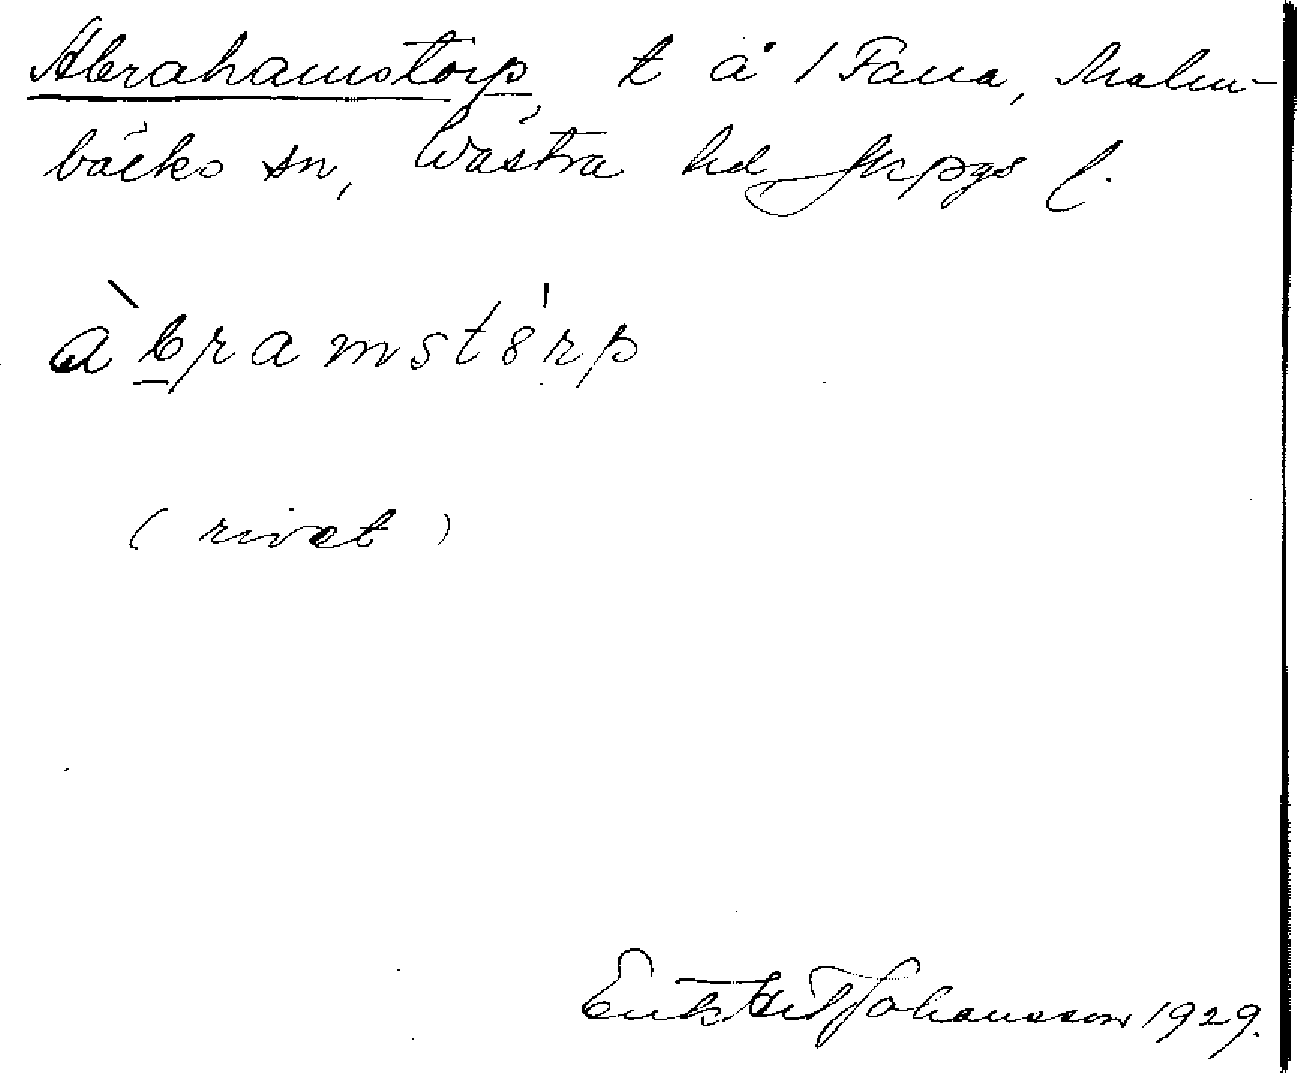 Abrahamstorp, t å 1 Fana, Malm-
bäcks sn, Västra hd Jkpgs l.
àbramstórp
(rivet)
Johansson 1929.